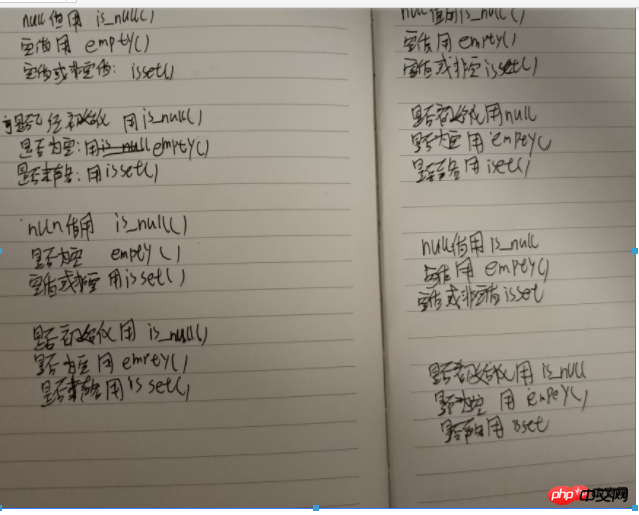 null值用 is_null()
空值用 empty()
空值或非空值: isset()
是否已经初始化 用is_null()
是否为空:用is_null empty()
是否声名:用isset()
null值用 is_null()
是否为空 empty()
空值或非空 用isset()
是否初始化用 is_null()
是否为空 用 empty()
是否声名用isset()
null值用is_null()
空值用 empty()
空值或非空isset()
是否初始化用null
是否为空 用 empty()
是否声名用isset()
null值用is_null
空值用 empty()
空值或非空值isset
是否初始化用 is_null
是否为空 用 empty()
是否声名用isset
php中文网